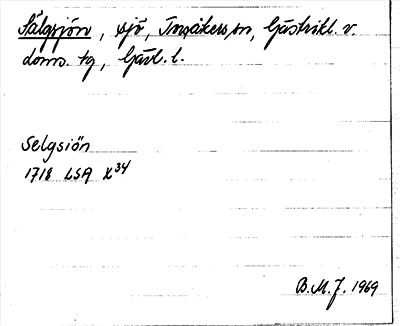 Sälgsjön, sjö, Torsåkers sn, Gästrikl. v.
doms. tg, Gävl. l.
Selgsiön
1718 LSA X34
B.M.J. 1969